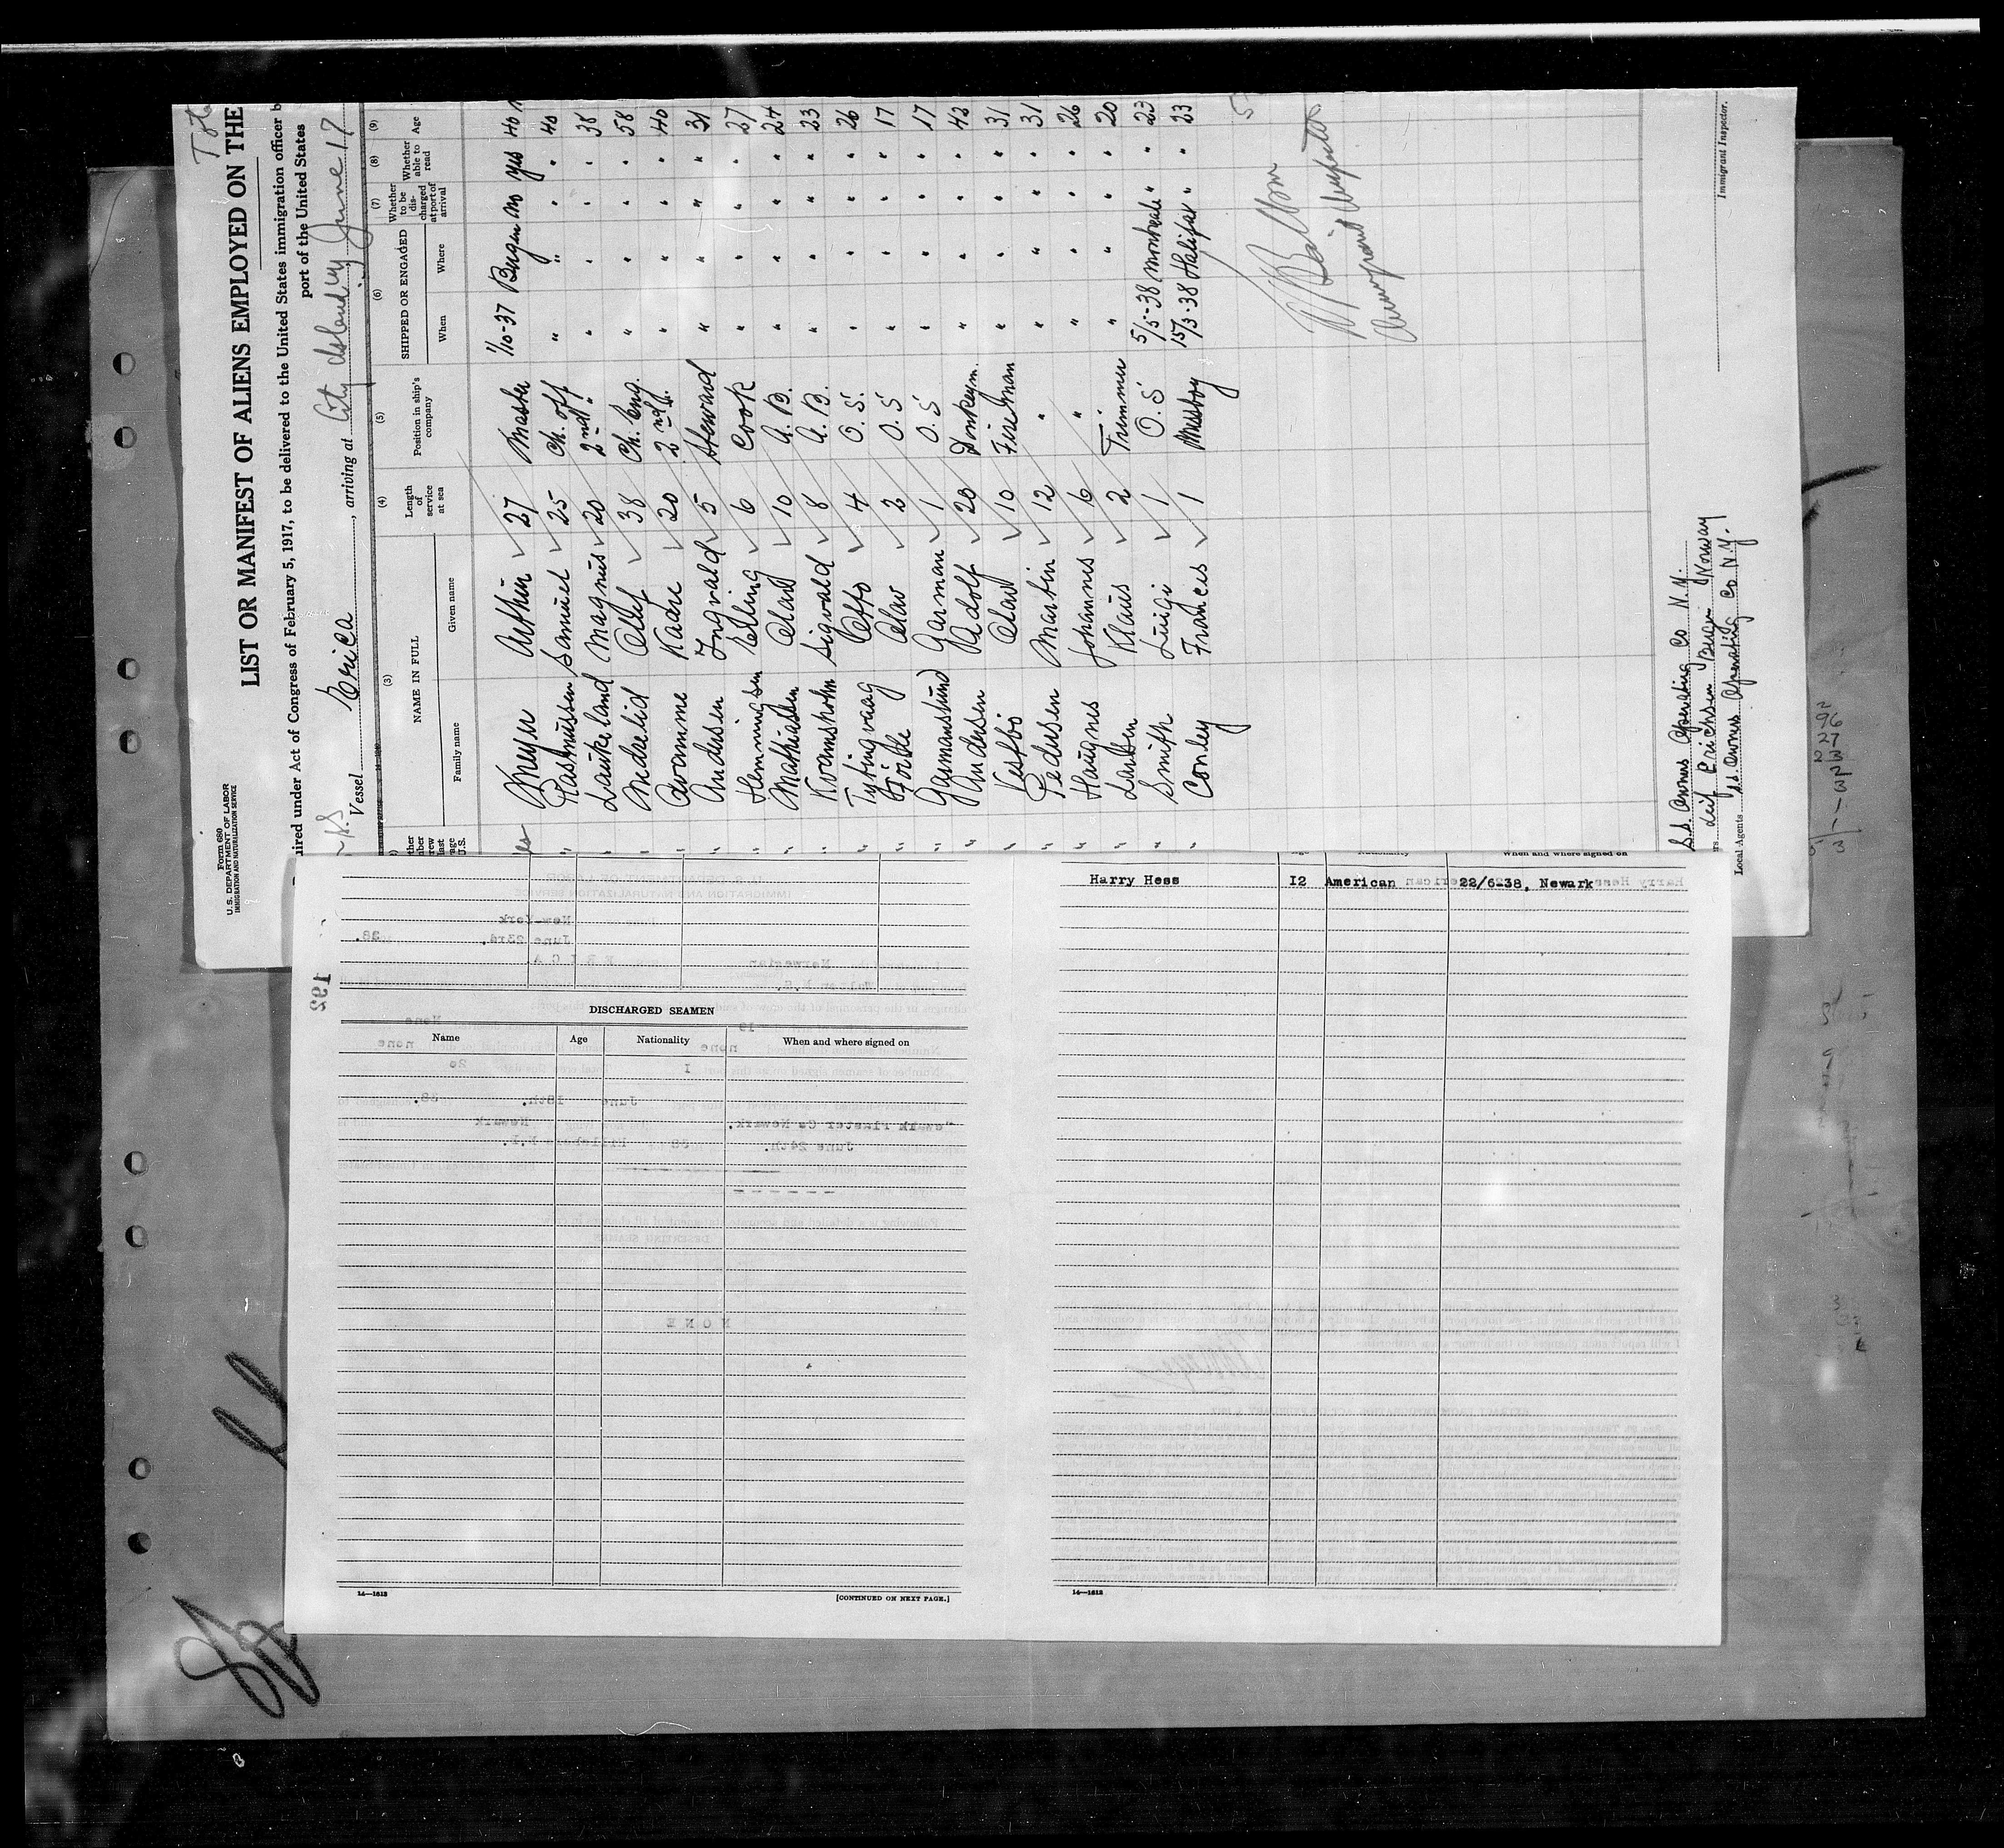 Form 680
U.S. DEPARTMENT OF LABOR
IMMIGRATION AND NATURALIZATION SERVICE
LIST OR MANIFEST OF ALIENS EMPLOYED ON THE
ired under Act of Congress of February 5, 1917, to be delivered to the United States immigration officer b
port of the United States
Vessel Erica, arriving at City Island NY June 17
(3) (4) (5) (6) (7) (8) (9)
NAME IN FULL Length of service at sea Position in ship's company SHIPPED OR ENGAGED Whether to be discharged at port of arrival Whether able to read Age
Family name Given name When Where
Meyer Arthur 27 Master 1/10-37 Bergen no yes 40
Rasmussen Samuel 25 Ch. off " " " " 40
Laukeland Magnus 20 2nd " " " " " 38
Medrelid Olef 38 Ch. Eng. " " " " 58
Kvamme Kaare 20 2nd " " " " " 40
Andersen Ingvald 5 Steward " " " " 31
Hemmingsen Erling 6 Cook " " " " 27
Mathiasen Olav 10 A.B. " " " " 24
Kvamsholm Sigvald 8 A.B. " " " " 23
Tytingvaag Otto 4 O.S. " " " " 26
Olav 2 O.S " " " " 17
Garmanslund Garman 1 O.S " " " " 17
Andersen Adolf 20 Donkeym. " " " " 43
Olav 10 Fireman " " " " 31
Pedersen Martin 12 " " " " " 31
Haugnes Johannes 6 " " " " " 26
Larsen Klaus 2 Trimmer " " " " 20
Smith Luigi 1 O.S 5/5-38 Montreale " " 23
Conley Frances 1 Messboy 15/3-38 Halifax " " 23
Immigrant Inspector
S.S. Owners Operating Co N.Y.
Leif Erichsen Bergen Norway
Local Agents S.S. Owners Operating Co N.Y.
Immigrant Inspector.
192
DISCHARGED SEAMEN
Name Age Nationality When and where signed on
14—1613
[CONTINUED ON NEXT PAGE.]
Nationality When and where signed on
Harry Hess I2 American 22/6-38, Newark
14—1613